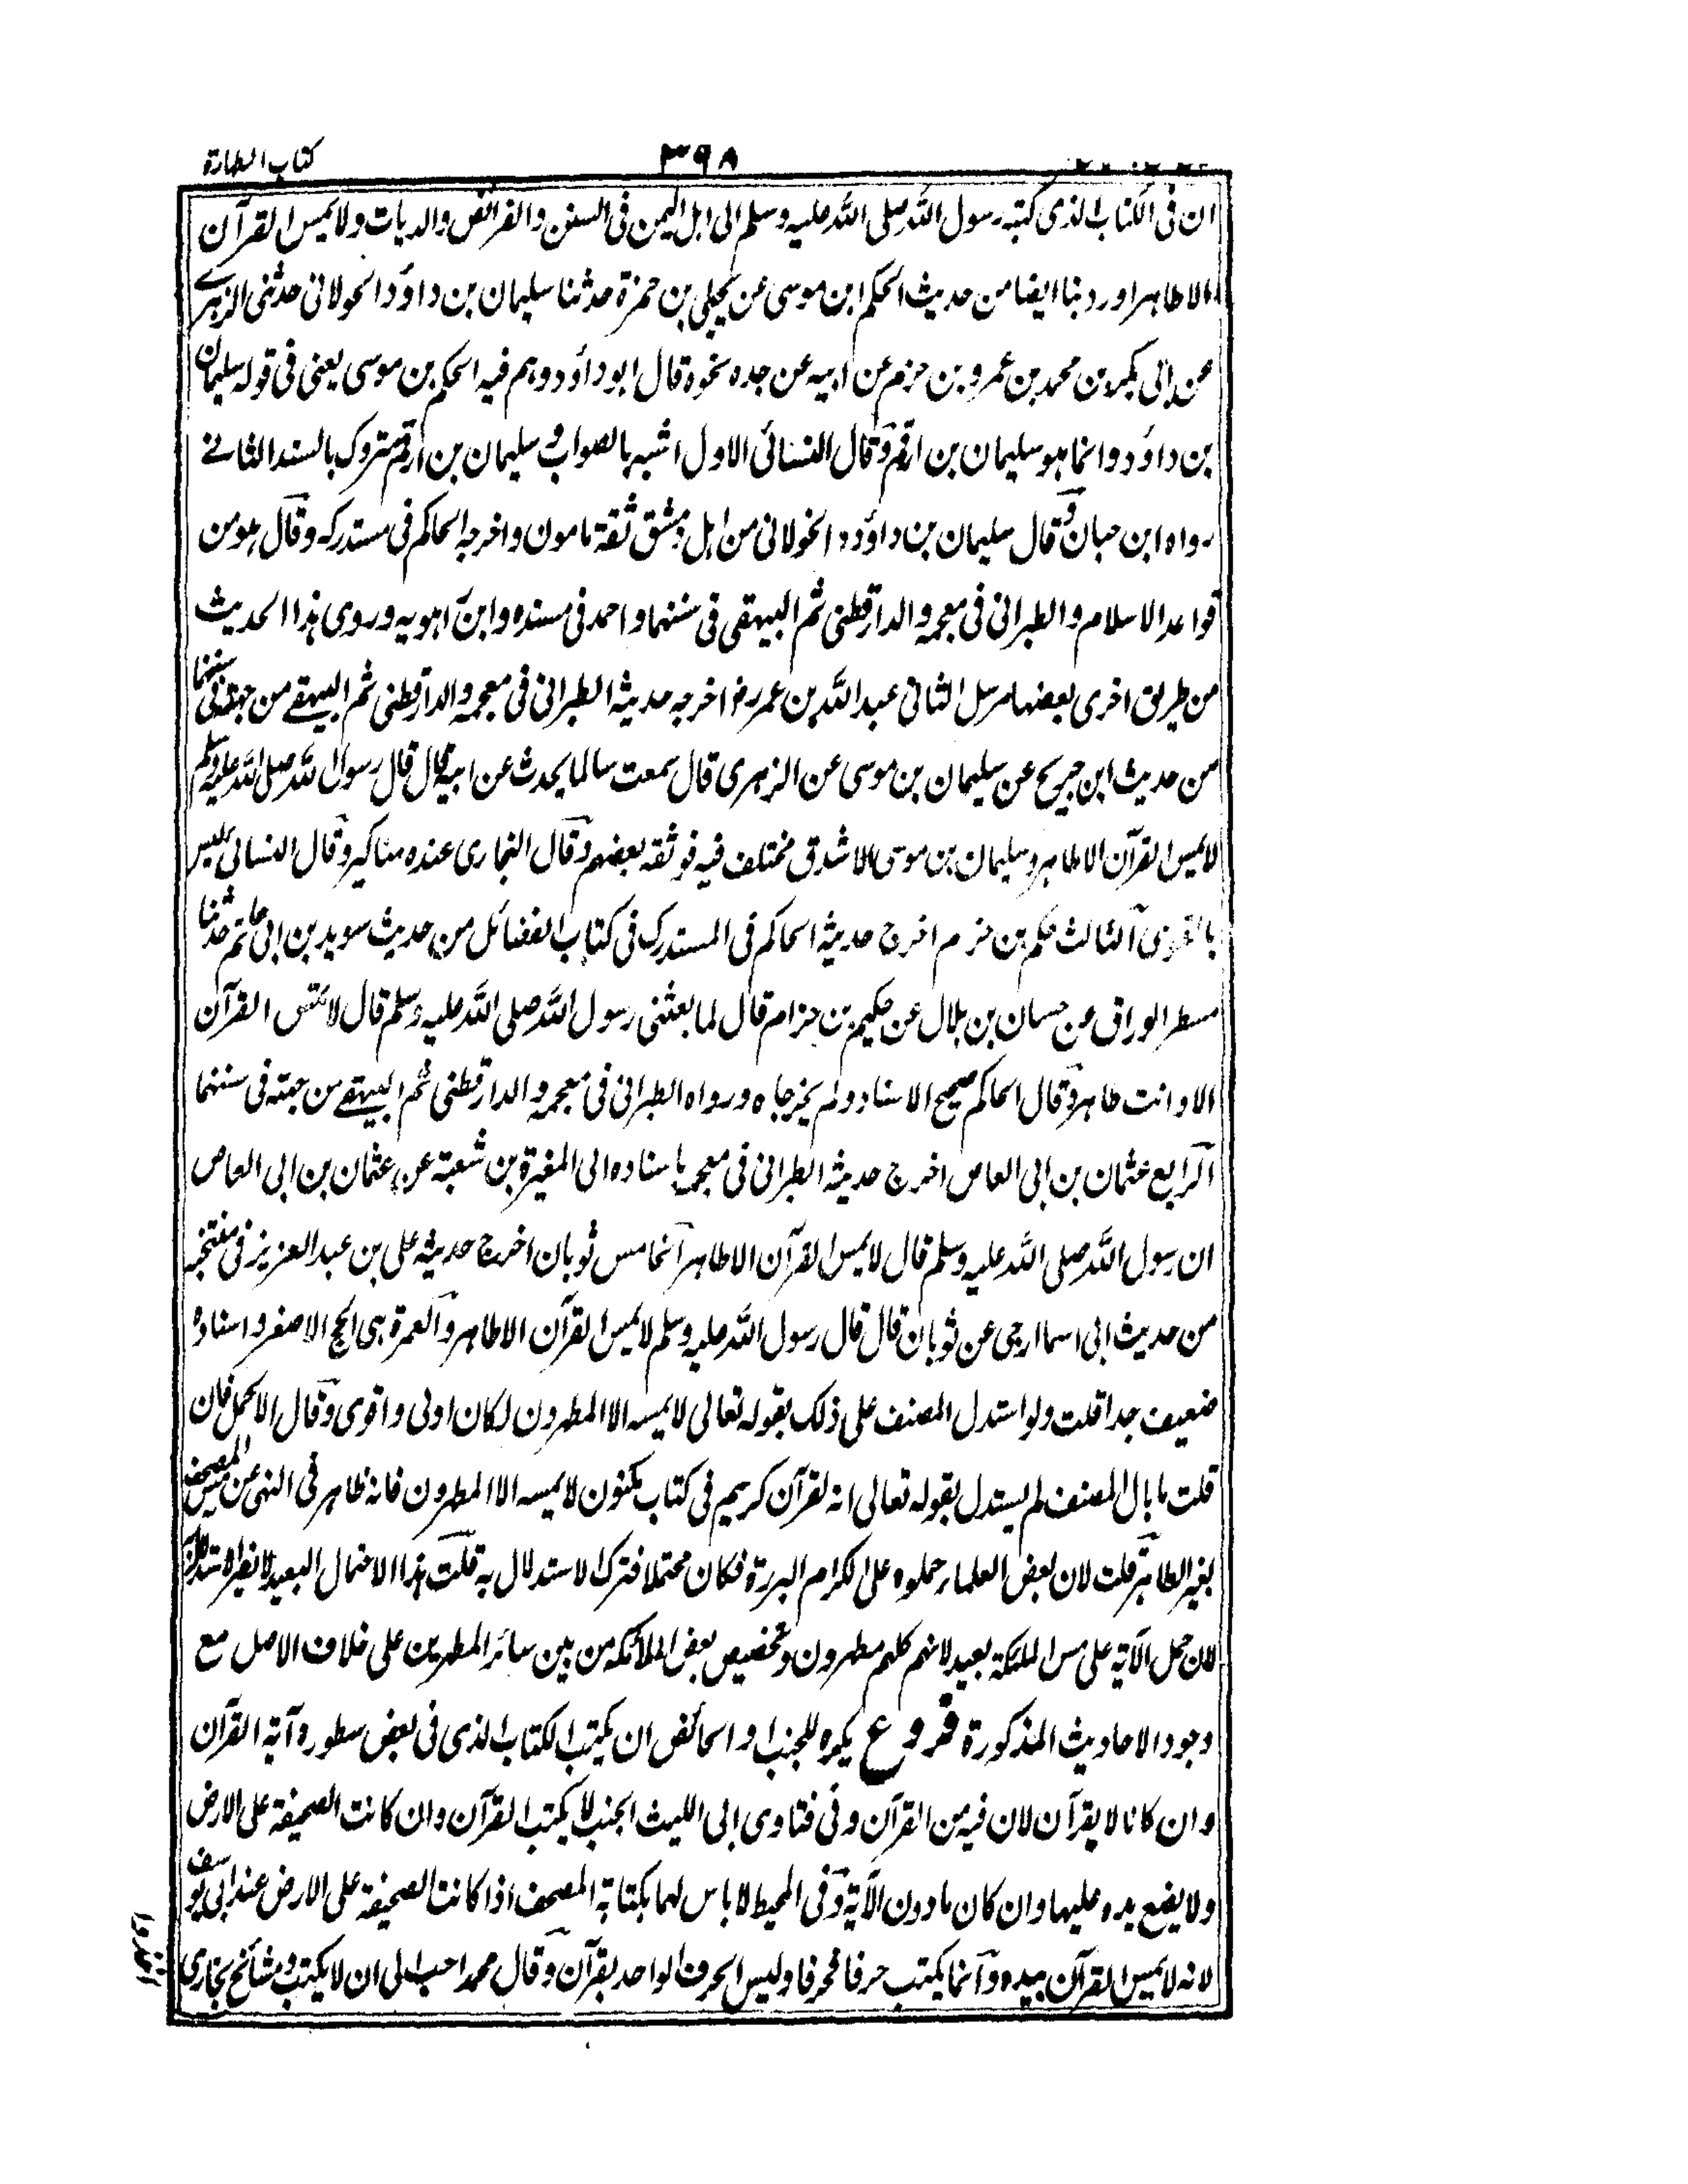 كتاب الطهارة
٣٩٨
ان فى الكتاب الذى كتبه رسول الله صلى الله عليه وسلم الى اهل اليمن فى السنن والفرائض والديات ولا يمس القرآن
الا طاهر اورد بنا ايضا من حديث الحكم ابن موسى عن يحيى بن حمزة حدثنا سليمان بن داؤد الخولانى حدثنى الزهرے
عن ابى بكر بن محمد بن عمرو بن حزم عن ابيه عن جده نحوه قال ابو داؤد وهم فيه الحكم بن موسى يعنى فى قوله سليمان
بن داؤد وانما هو سليمان بن ارقم وقال النسائى الاول اشبه بالصواب و سليمان بن ارقم متروك بالسند الثانے
رواه ابن حبان وقال سليمان بن داؤد الخولانى من اهل دمشق ثقة مامون واخرجه الحاكم فى مستدركه وقال هو من
قواعد الاسلام والطبرانى فى معجمه والدارقطنى ثم البيهقى فى سننهما واحمد فى مسنده وابن راهويه وروى هذا الحديث
من طريق اخرى بعضها مرسل الثانى عبد الله بن عمر رض اخرجه حديثه الطبرانى فى معجمه والدارقطنى ثم البيهقے من جهته فى سننهما
من حديث ابن جريج عن سليمان بن موسى عن الزهرى قال سمعت سالما يحدث عن ابيه قال قال رسول الله صلى الله عليه وسلم
لا يمس القرآن الا طاهر وسليمان بن موسى الاشدق مختلف فيه فوثقه بعضهم وقال البخارى عنده مناكير وقال النسائى ليس
بالقوى آلثالث حكم بن حزم اخرج حديثه الحاكم فى المستدرك فى كتاب الفضائل من حديث سويد بن ابى حاتم حدثنا
مسطر الوراق عن حسان بن بلال عن حكيم بن حزام قال لما بعثنى رسول الله صلى الله عليه وسلم قال لا تمس القرآن
الا وانت طاهر وقال الحاكم صحيح الاسناد ولم يخرجاه ورواه الطبرانى فى معجمه والدارقطنى ثم البيهقے من جهته فى سننهما
آلرابع عثمان بن ابى العاص اخرج حديثه الطبرانى فى معجمه باسناده الى المغيرة بن شعبة عن عثمان بن ابى العاص
ان رسول الله صلى الله عليه وسلم قال لا يمس القرآن الا طاهر آلخامس ثوبان اخرج حديثه على بن عبد العزيز فى منتخبه
من حديث ابى اسما ارحبى عن ثوبان قال قال رسول الله صلى الله عليه وسلم لا يمس القرآن الا طاهر والعمرة هى الحج الاصغر واسناده
ضعيف جدا قلت ولو استدل المصنف على ذلك بقوله تعالى لا يمسه الا المطهرون لكان اولى واقوى وقال الاكمل فان
قلت ما بال المصنف لم يستدل بقوله تعالى انه لقرآن كريم فى كتاب مكنون لا يمسه الا المطهرون فانه ظاهر فى النهى عن مس المصحف
لغير الطاهر قلت لان بعض العلماء حملوه على الكرام البررة فكان محتملا فترك الاستدلال به قلت هذا الاحتمال البعيد لا يضر الاستدلال
لان حمل الآية على مس الملئكة بعيد لانهم كلهم مطهرون وتخصيص بعض الملائكة من بين سائر المطهرين على خلاف الاصل مع
وجود الاحاديث المذكورة فروع يكره للجنب او الحائض ان يكتب الكتاب الذى فى بعض سطوره آية القرآن
وان كانا لا يقرآن لان فيه من القرآن وفى فتاوى ابى الليث الجنب لا يكتب القرآن وان كانت الصحيفة على الارض
ولا يضع يده عليها وان كان ما دون الآية وفى المحيط لا باس لهما بكتابة المصحف اذا كانت الصحيفة على الارض عند ابى يوسف
لانه لا يمس القرآن بيده وانما يكتب حرفا فحرفا وليس الحرف الواحد بقرآن وقال محمد احب الى ان لا يكتب ومشائخ بخارى